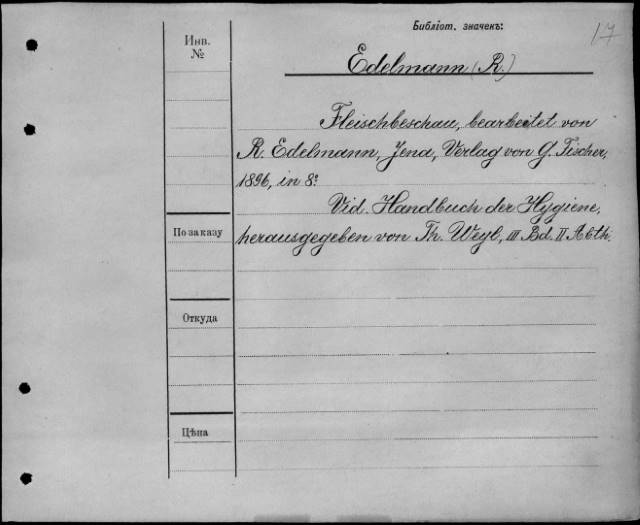 Библіот. значекъ:
17
Инв.
№
Edelmann (R.)
Fleischbeschau, bearbeitet von
R. Edelmann, Jena, Verlag von G. Fischer,
1896, in 8º
Vid. Handbuch der Hygiene,
По заказу
herausgegeben von Th. Weyl, III Bd. II Abth.
Откуда
Цѣна